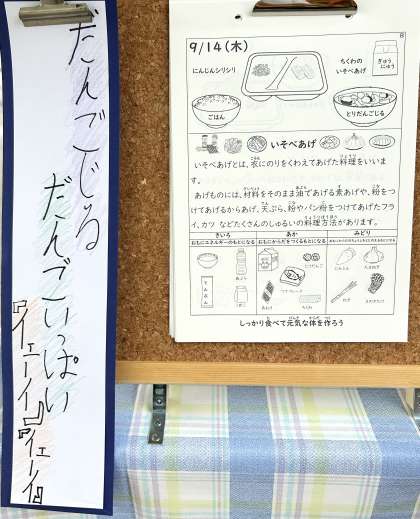 だんごじる
だんごいっぱい
ワイエーイ
イエーイ
8
9/14(木)
にんじんシリシリ
ちくわの
いそべあげ
ぎゅう
にゅう
ごはん
とりだんごじる
いそべあげ
いそべあげとは、衣にのりをくわえてあげた料理をいいま
す。
あげものには、材料をそのまま油であげる素あげや、粉をつ
けてあげるからあげ、天ぷら、粉やパン粉をつけてあげたフラ
イ、カツ などたくさんのしゅるいの料理方法があります。
きいろ
あか
みどり
おもにエネルギーのもとになる
おもにからだをつくるもとになる
しっかり食べて元気な体を作ろう